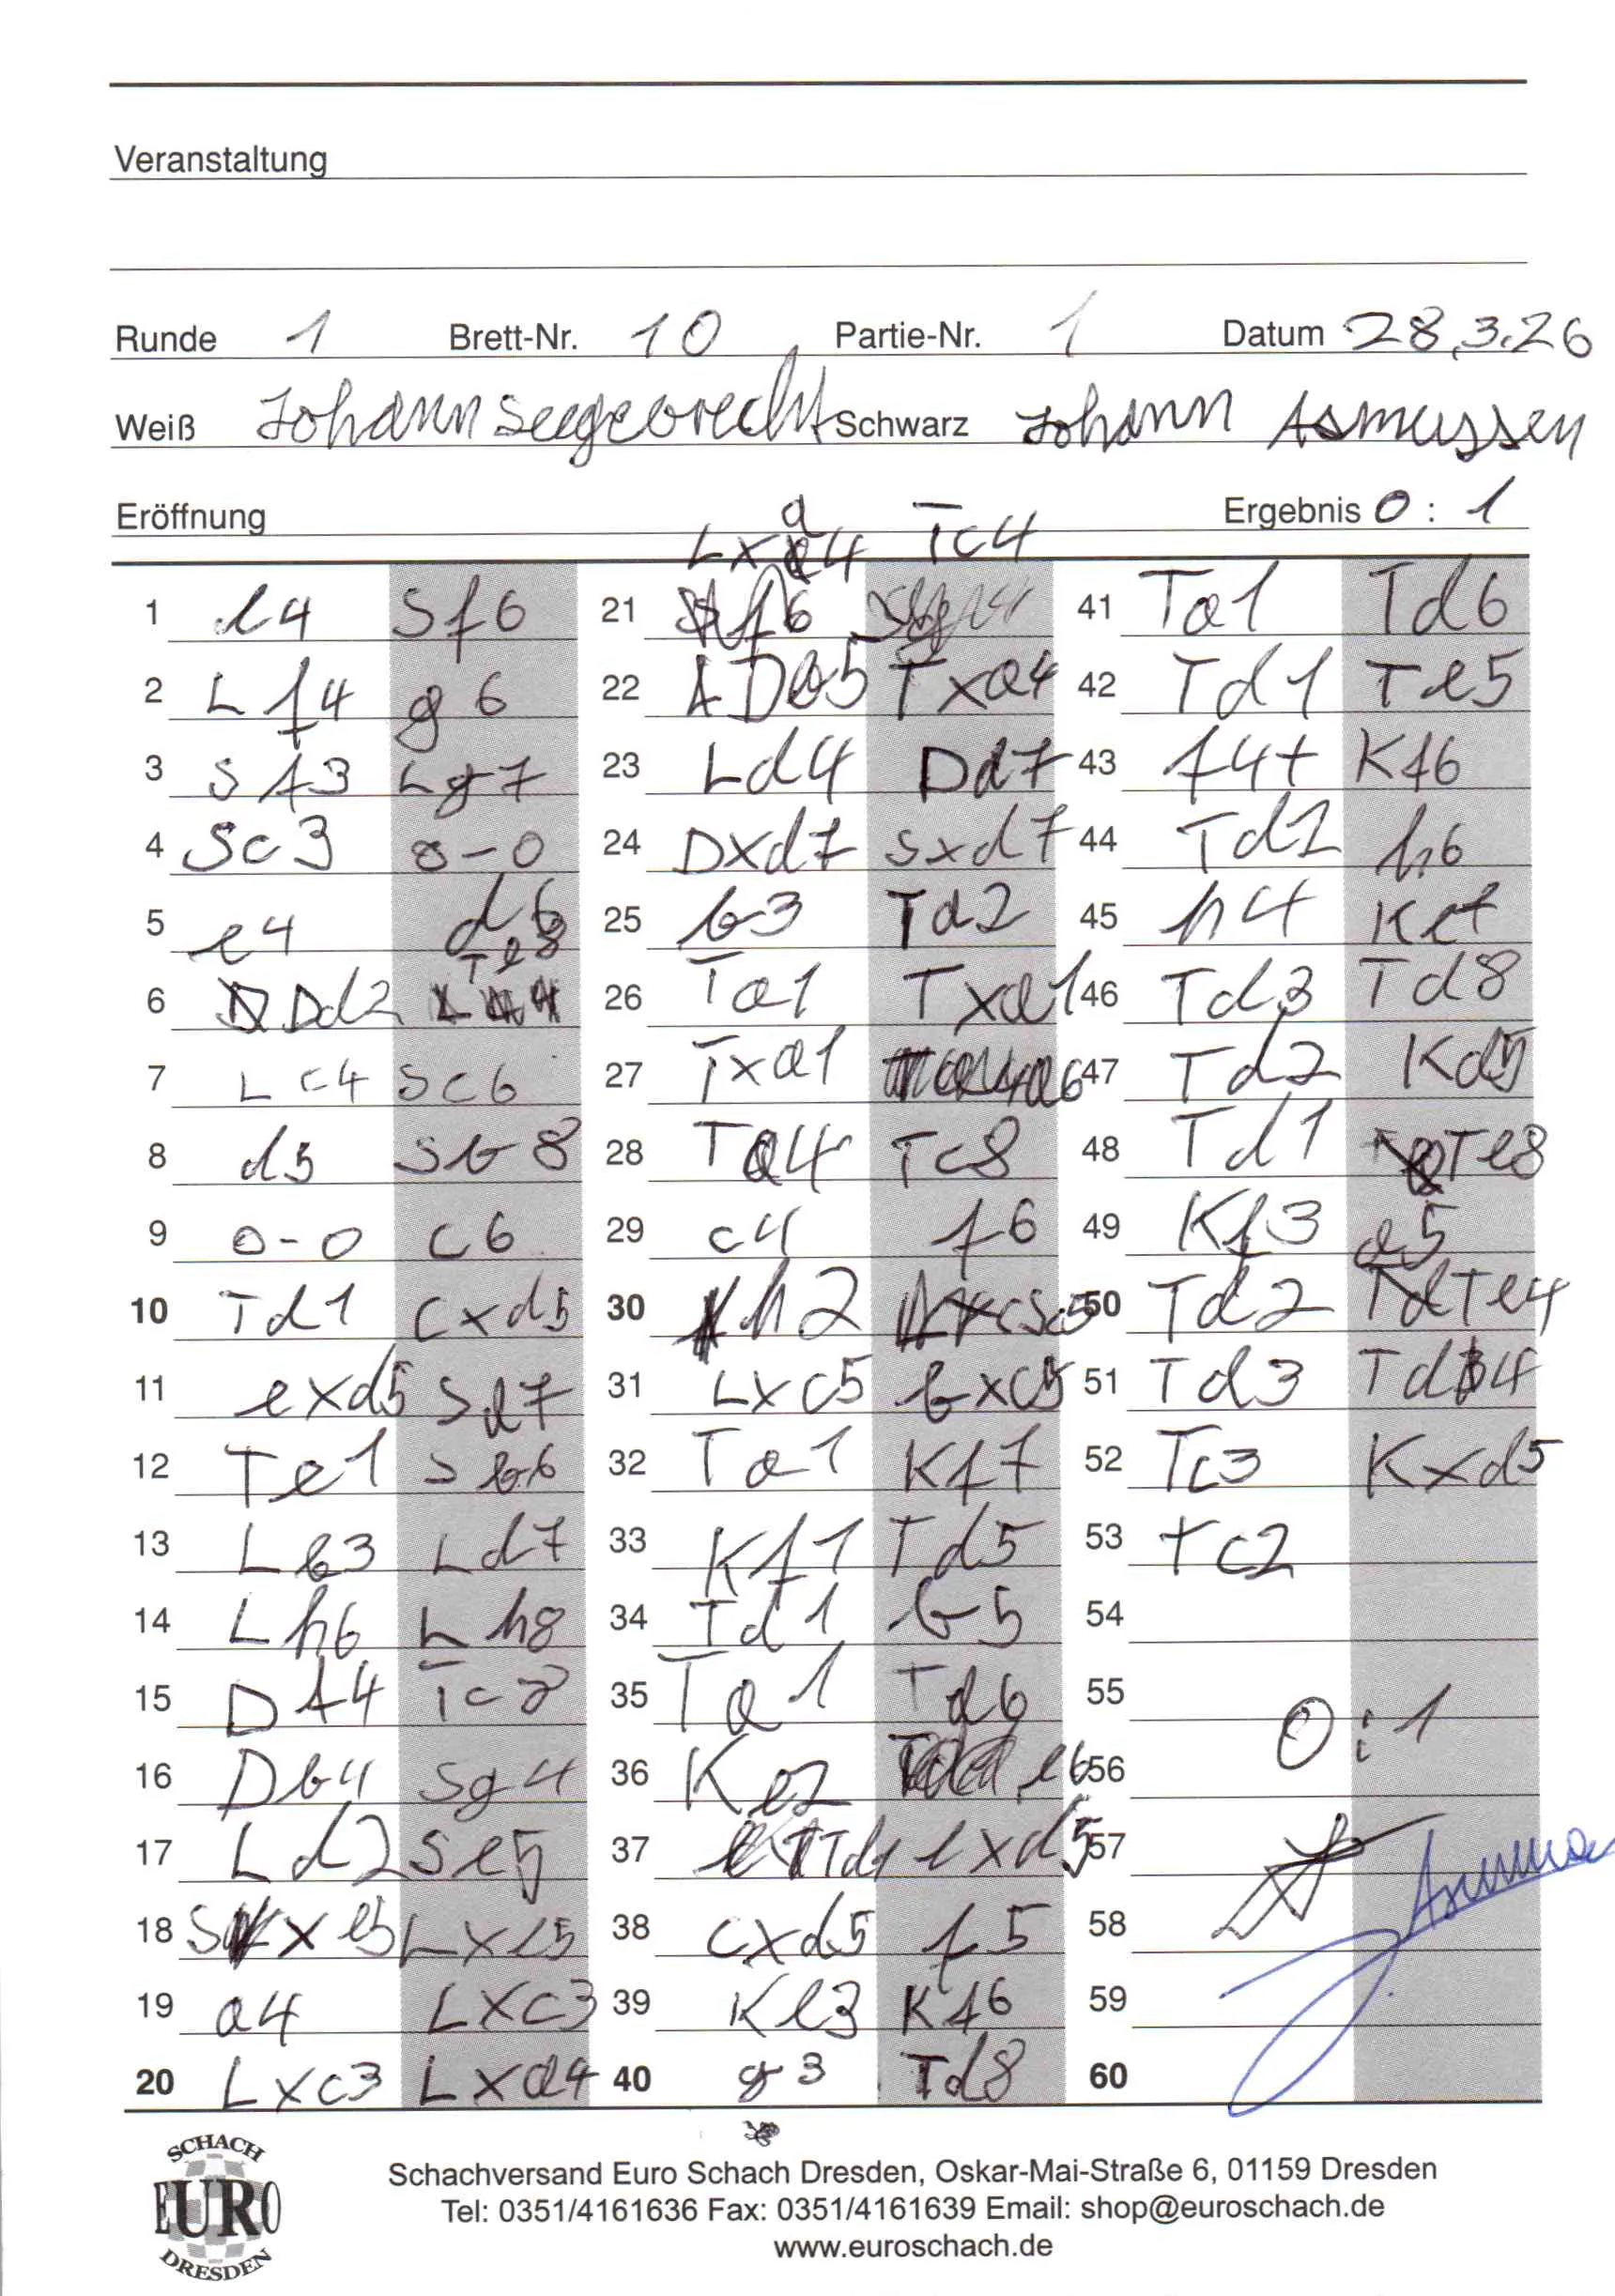 Veranstaltung
Runde 1 Brett-Nr. 10 Partie-Nr. 1 Datum 28.3.26
Weiß Johann Seegebrecht Schwarz Johann Asmussen
Eröffnung Ergebnis 0 : 1
Lxa4 Tc4
1 d4 Sf6
2 Lf4 g6
3 Sf3 Lg7
4 Sc3 0-0
5 e4 d6
6 Dd2 Te8
7 Lc4 Sc6
8 d5 Sb8
9 0-0 c6
10 Td1 cxd5
11 exd5 Sd7
12 Te1 Sb6
13 Lb3 Ld7
14 Lh6 Lh8
15 Df4 Tc8
16 Db4 Sg4
17 Ld2 Se5
18 Sxe5 Lxe5
19 a4 Lxc3
20 Lxc3 Lxa4
21
22 Da5 Txa4
23 Ld4 Dd7
24 Dxd7 Sxd7
25 b3 Td2
26 Ta1 Txa1
27 Txa1 a6
28 Ta4 Tc8
29 c4 f6
30 h2 Sc5
31 Lxc5 bxc5
32 Ta1 Kf7
33 Kf1 Td5
34 Td1 b5
35 Ta1 Td6
36 Ke2 e6
37 Td1 exd5
38 cxd5 f5
39 Ke3 Kf6
40 g3 Td8
41 Ta1 Td6
42 Td1 Te5
43 f4+ Kf6
44 Td2 h6
45 h4 Ke7
46 Td3 Td8
47 Td2 Kd5
48 Td1 Te8
49 Kf3 a5
50 Td2 Te4
51 Td3 Td4
52 Tc3 Kxd5
53 Tc2
54
55 0:1
56
57
58
59
60
SCHACH
EURO
DRESDEN
Schachversand Euro Schach Dresden, Oskar-Mai-Straße 6, 01159 Dresden
Tel: 0351/4161636 Fax: 0351/4161639 Email: shop@euroschach.de
www.euroschach.de